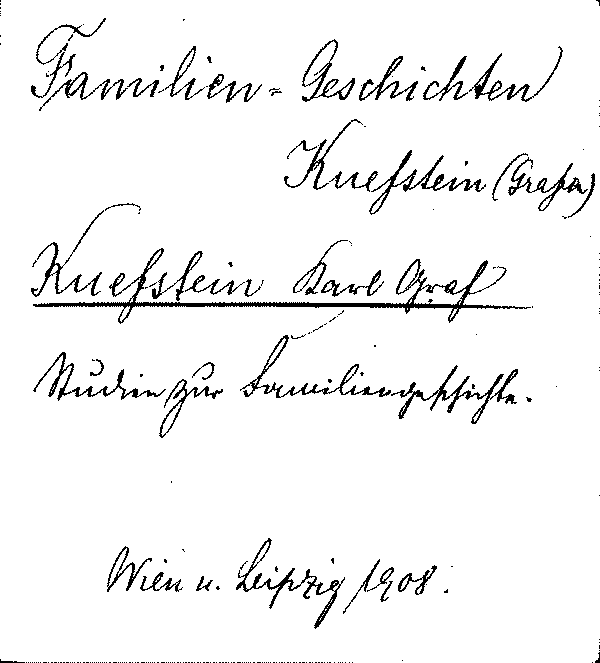 Familien-Geschichten
Kuefstein (Grafen)
Kuefstein Karl Graf
Studien zur Familiengeschichte.
Wien u. Leipzig 1908.